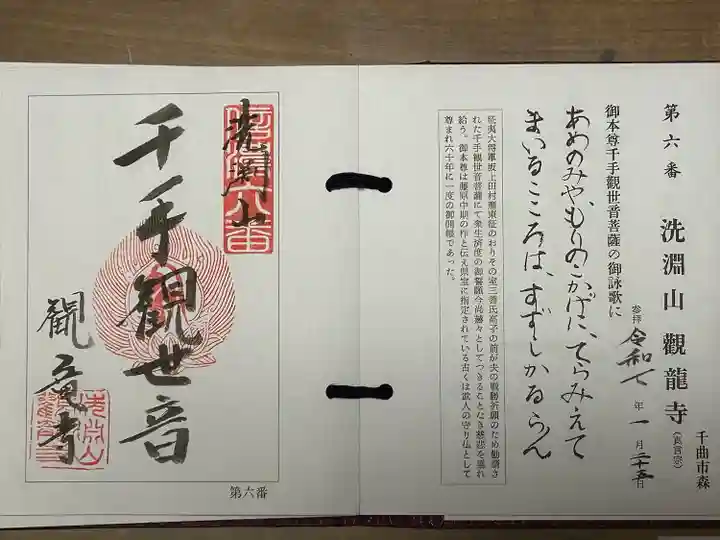 第六番
洗淵山 觀龍寺
(真言宗)
千曲市森
参拝 令和七年一月二十五日
御本尊千手観世音菩薩の御詠歌に
あめのみや、もりのこかげに、てらみえて
まいるこころは、すずしかるらん
征夷大将軍坂上田村麿東征のおりその室三善氏高子の前が夫の戦勝祈願のため勧請さ
れた千手観世音菩薩にて衆生済度の御誓願今尚赫々としてつきることなき慈悲を垂れ
給う。御本尊は藤原中期の作と伝え県宝に指定されている古くは武人の守り仏として
尊まれ六十年に一度の御開帳であった。
信濃六番
洗淵山
千手觀世音
觀竜寺
第六番